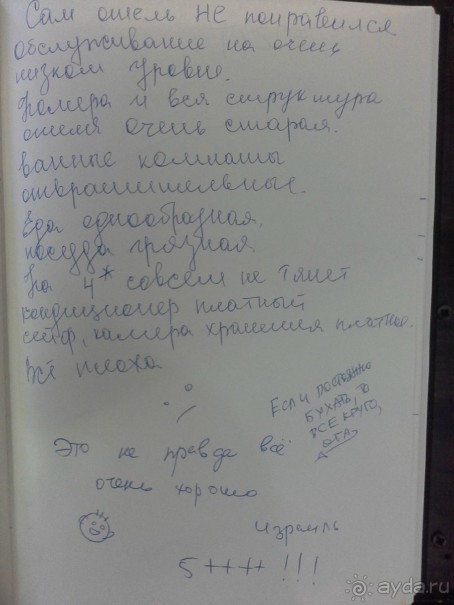 Сам отель НЕ понравился
обслуживание на очень
низком уровне.
Номера и вся структура
отеля очень старая.
ванные комнаты
отвратительные.
Еда однообразная,
посуда грязная
На 4* совсем не тянет
кондиционер платный
сейф, камера хранения платное.
Всё плохо
ЕСЛИ ПОСТОЯННО
БУХАТЬ, ТО
ВСЕ КРУТО,
Это не правда всё
очень хорошо
Израиль
5++++!!!
ayda.ru